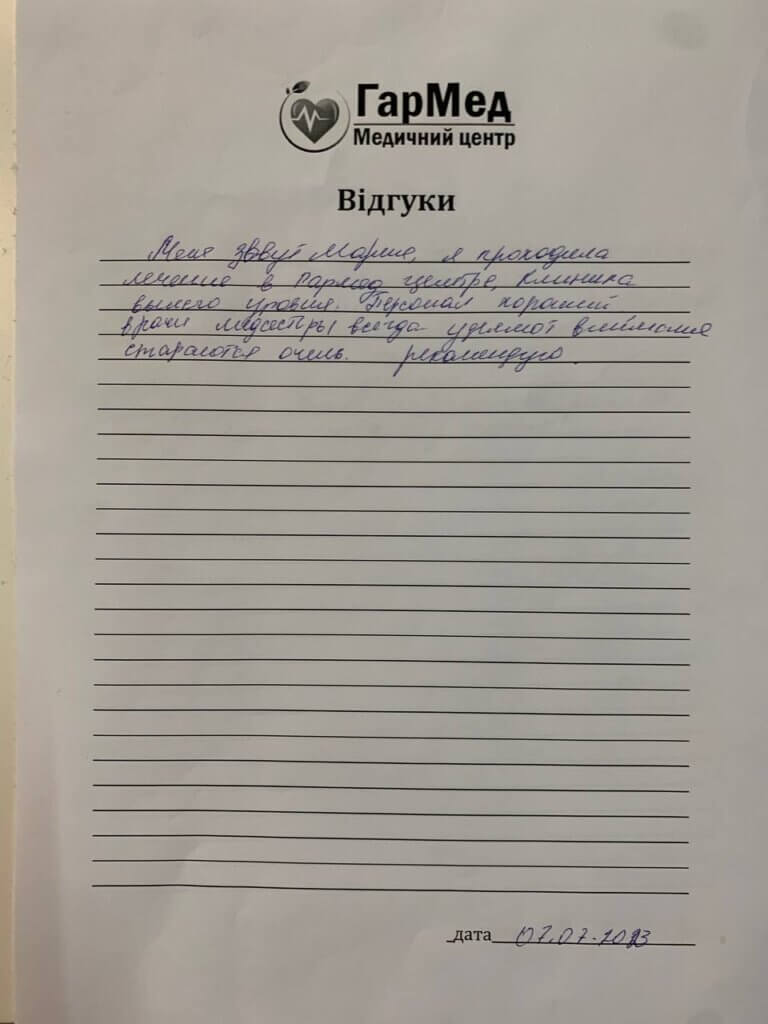 ГарМед
Медичний центр
Відгуки
Меня зовут Мария, я проходила
лечение в Гармед центре, Клиника
вышего уровня. Персонал хороший
врачи медсестры всегда уделяют внимания
стараются очень. рекомендую.
дата 07.07.2023